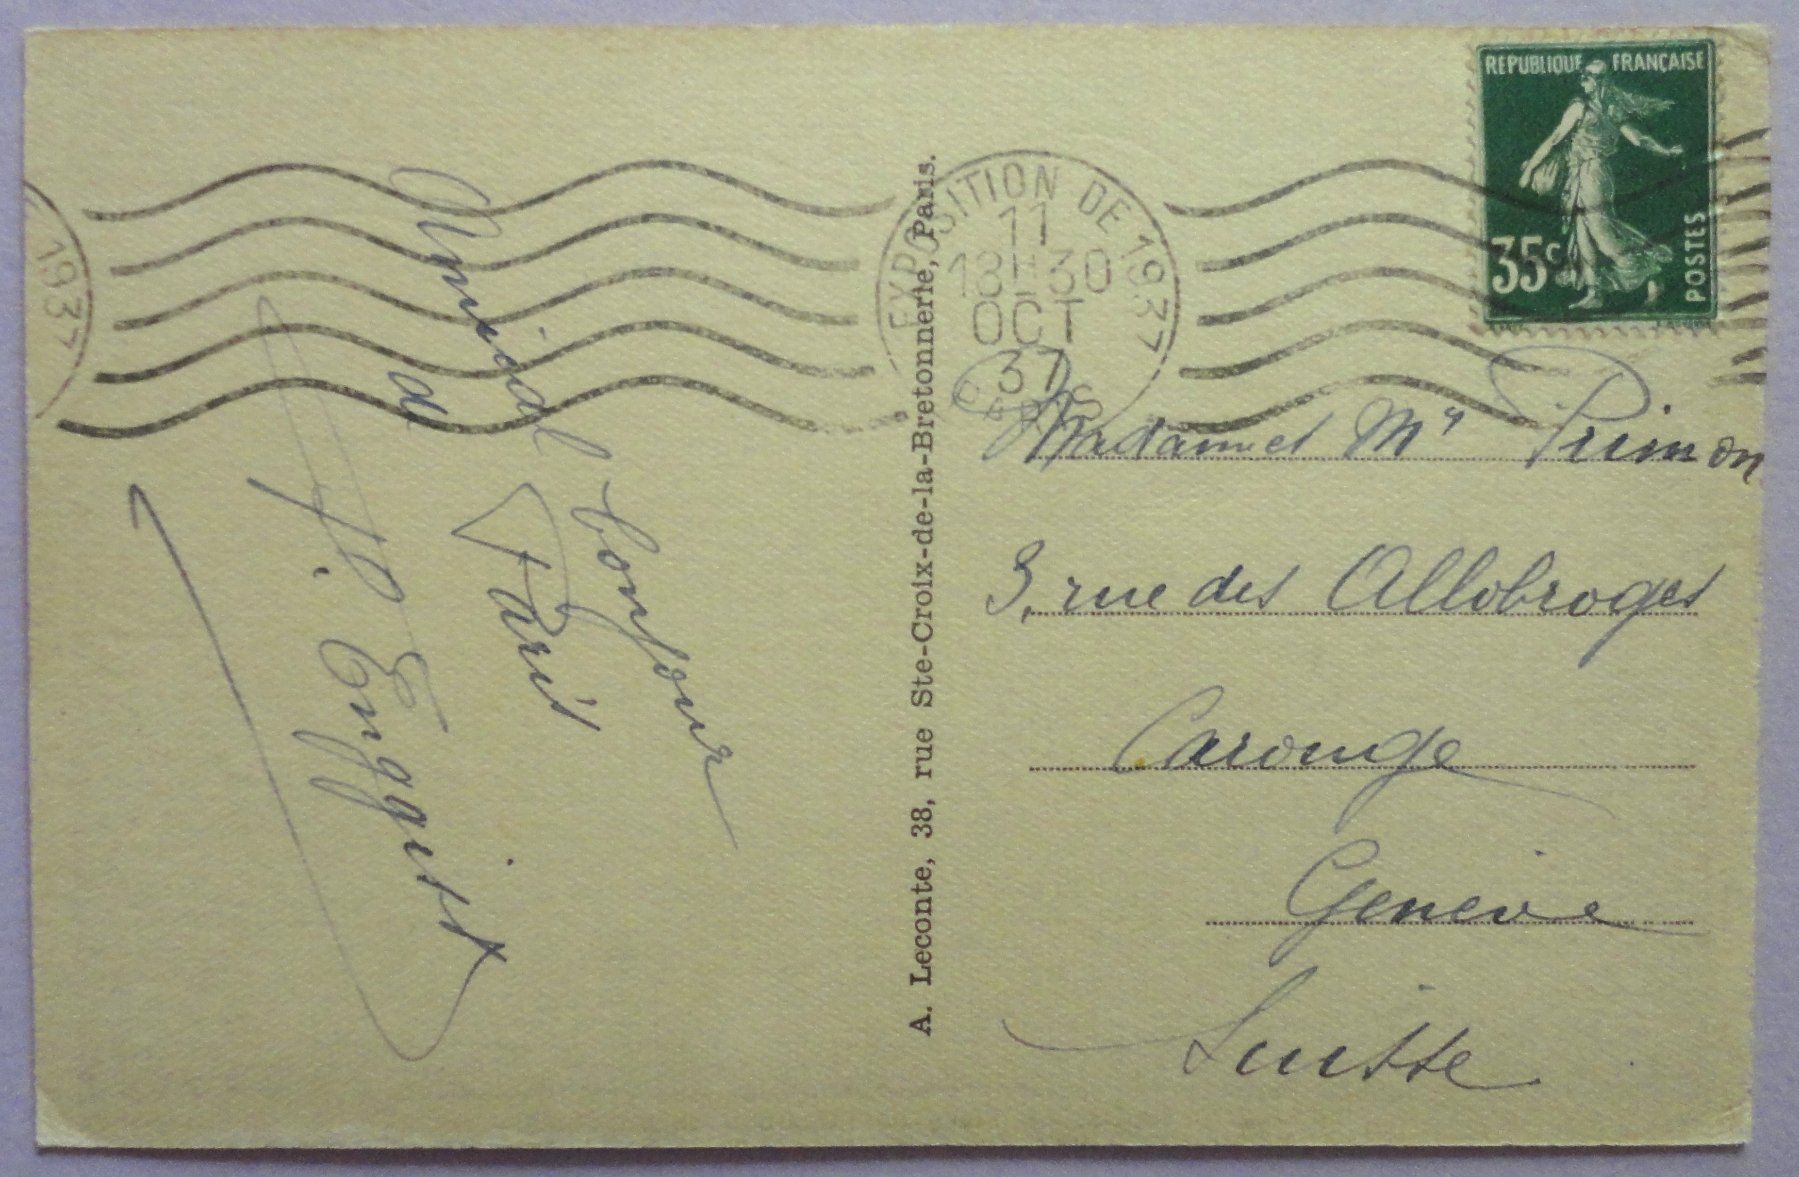 Amical bonjour
de Paris
H. Enggist
A. Leconte, 38, rue Ste-Croix-de-la-Bretonnerie, Paris.
1937
EXPOSITION DE 1937
11
18H30
OCT
37
PARIS
REPUBLIQUE FRANÇAISE
35c
POSTES
Madame et Mr Primon
3, rue des Allobroges
Carouge
Genève
Suisse